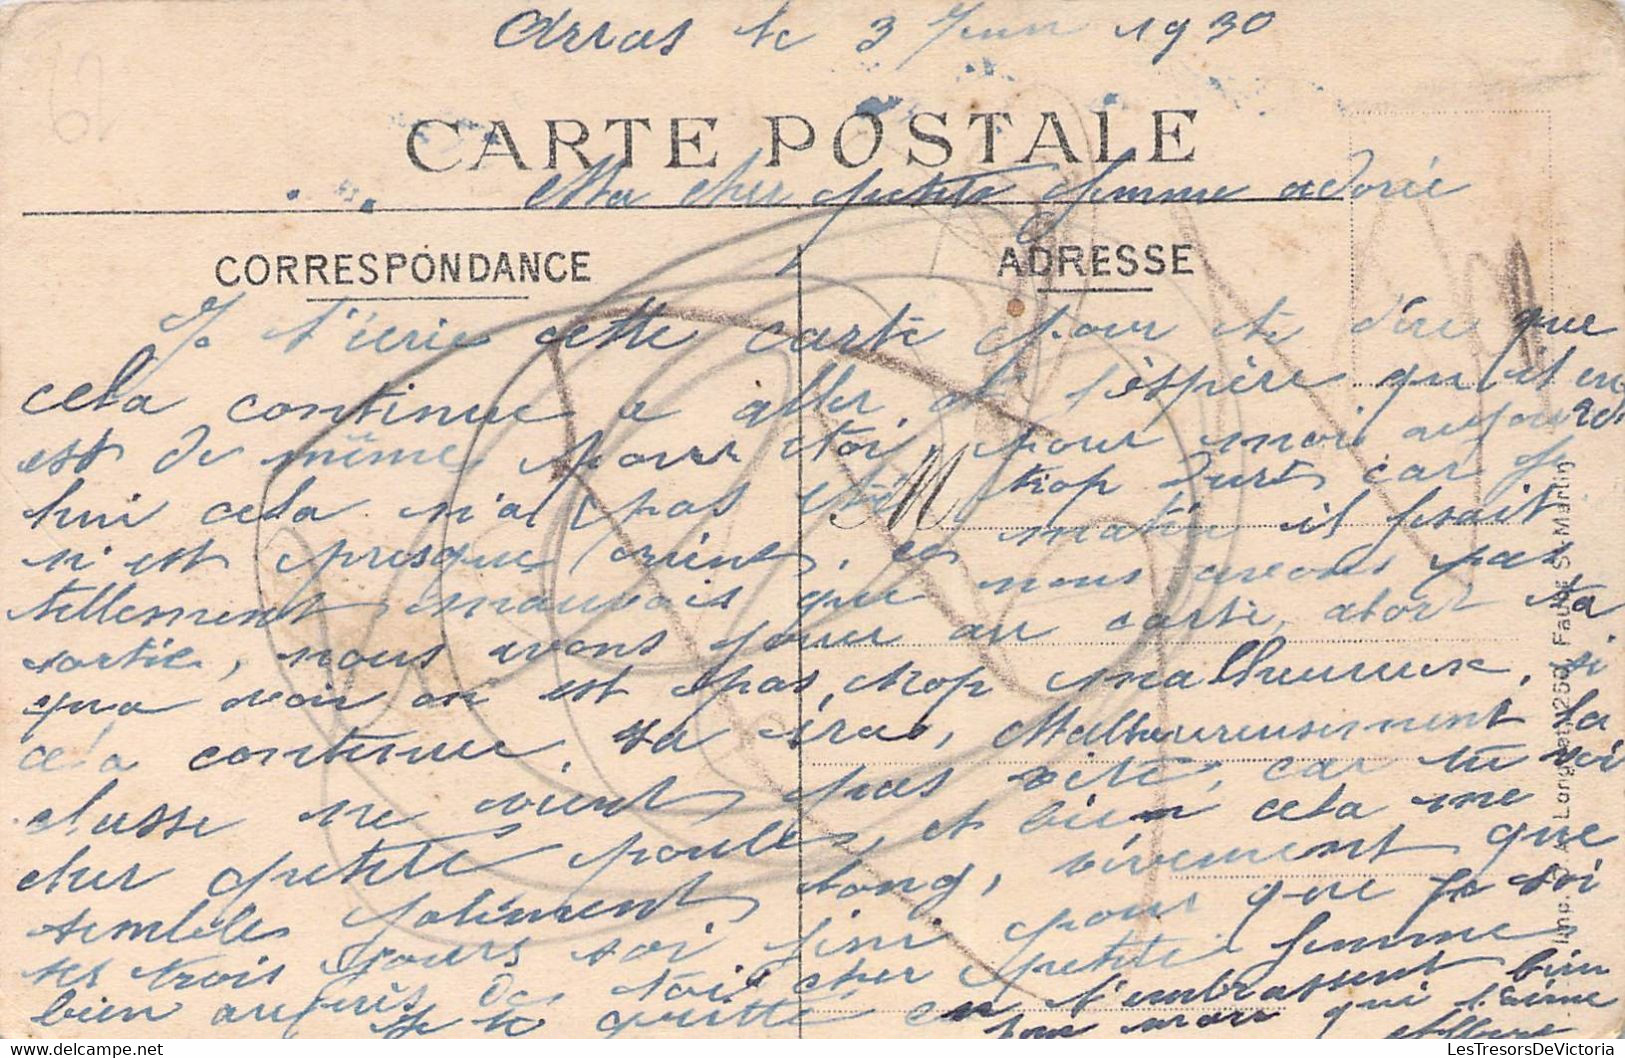 Arras le 3 Juin 1930
62
CARTE POSTALE
Ma cher petite femme adorée
CORRESPONDANCE
ADRESSE
Je t'écrie cette carte pour te dire que
cela continue a aller, et j'éspère qu'il en
est de même pour toi, pour moi aujourd
hui cela n'a pas été trop durs car je
n'i est presque rient, ce matin il fesait
tellement mauvais que nous avons pas
sortie, nous avons jouer au carte, abort ta
qu'a voir on est pas trop malheureux, si
cela continue, sa iras, Malheureusement la
classe ne vient pas vite, car tu voi
cher petite poule, et bien cela me
semble telement long, vivement que
ses trois jours soi fini pour que je soi
bien auprès de toi cher petite femme
Je te quitte en t'embrassent bien
ton mari qui t'aime
Imp. Longuet, 250, Faubg St-Martin
www.LesTresorsDeVictoria
LesTresorsDeVictoria